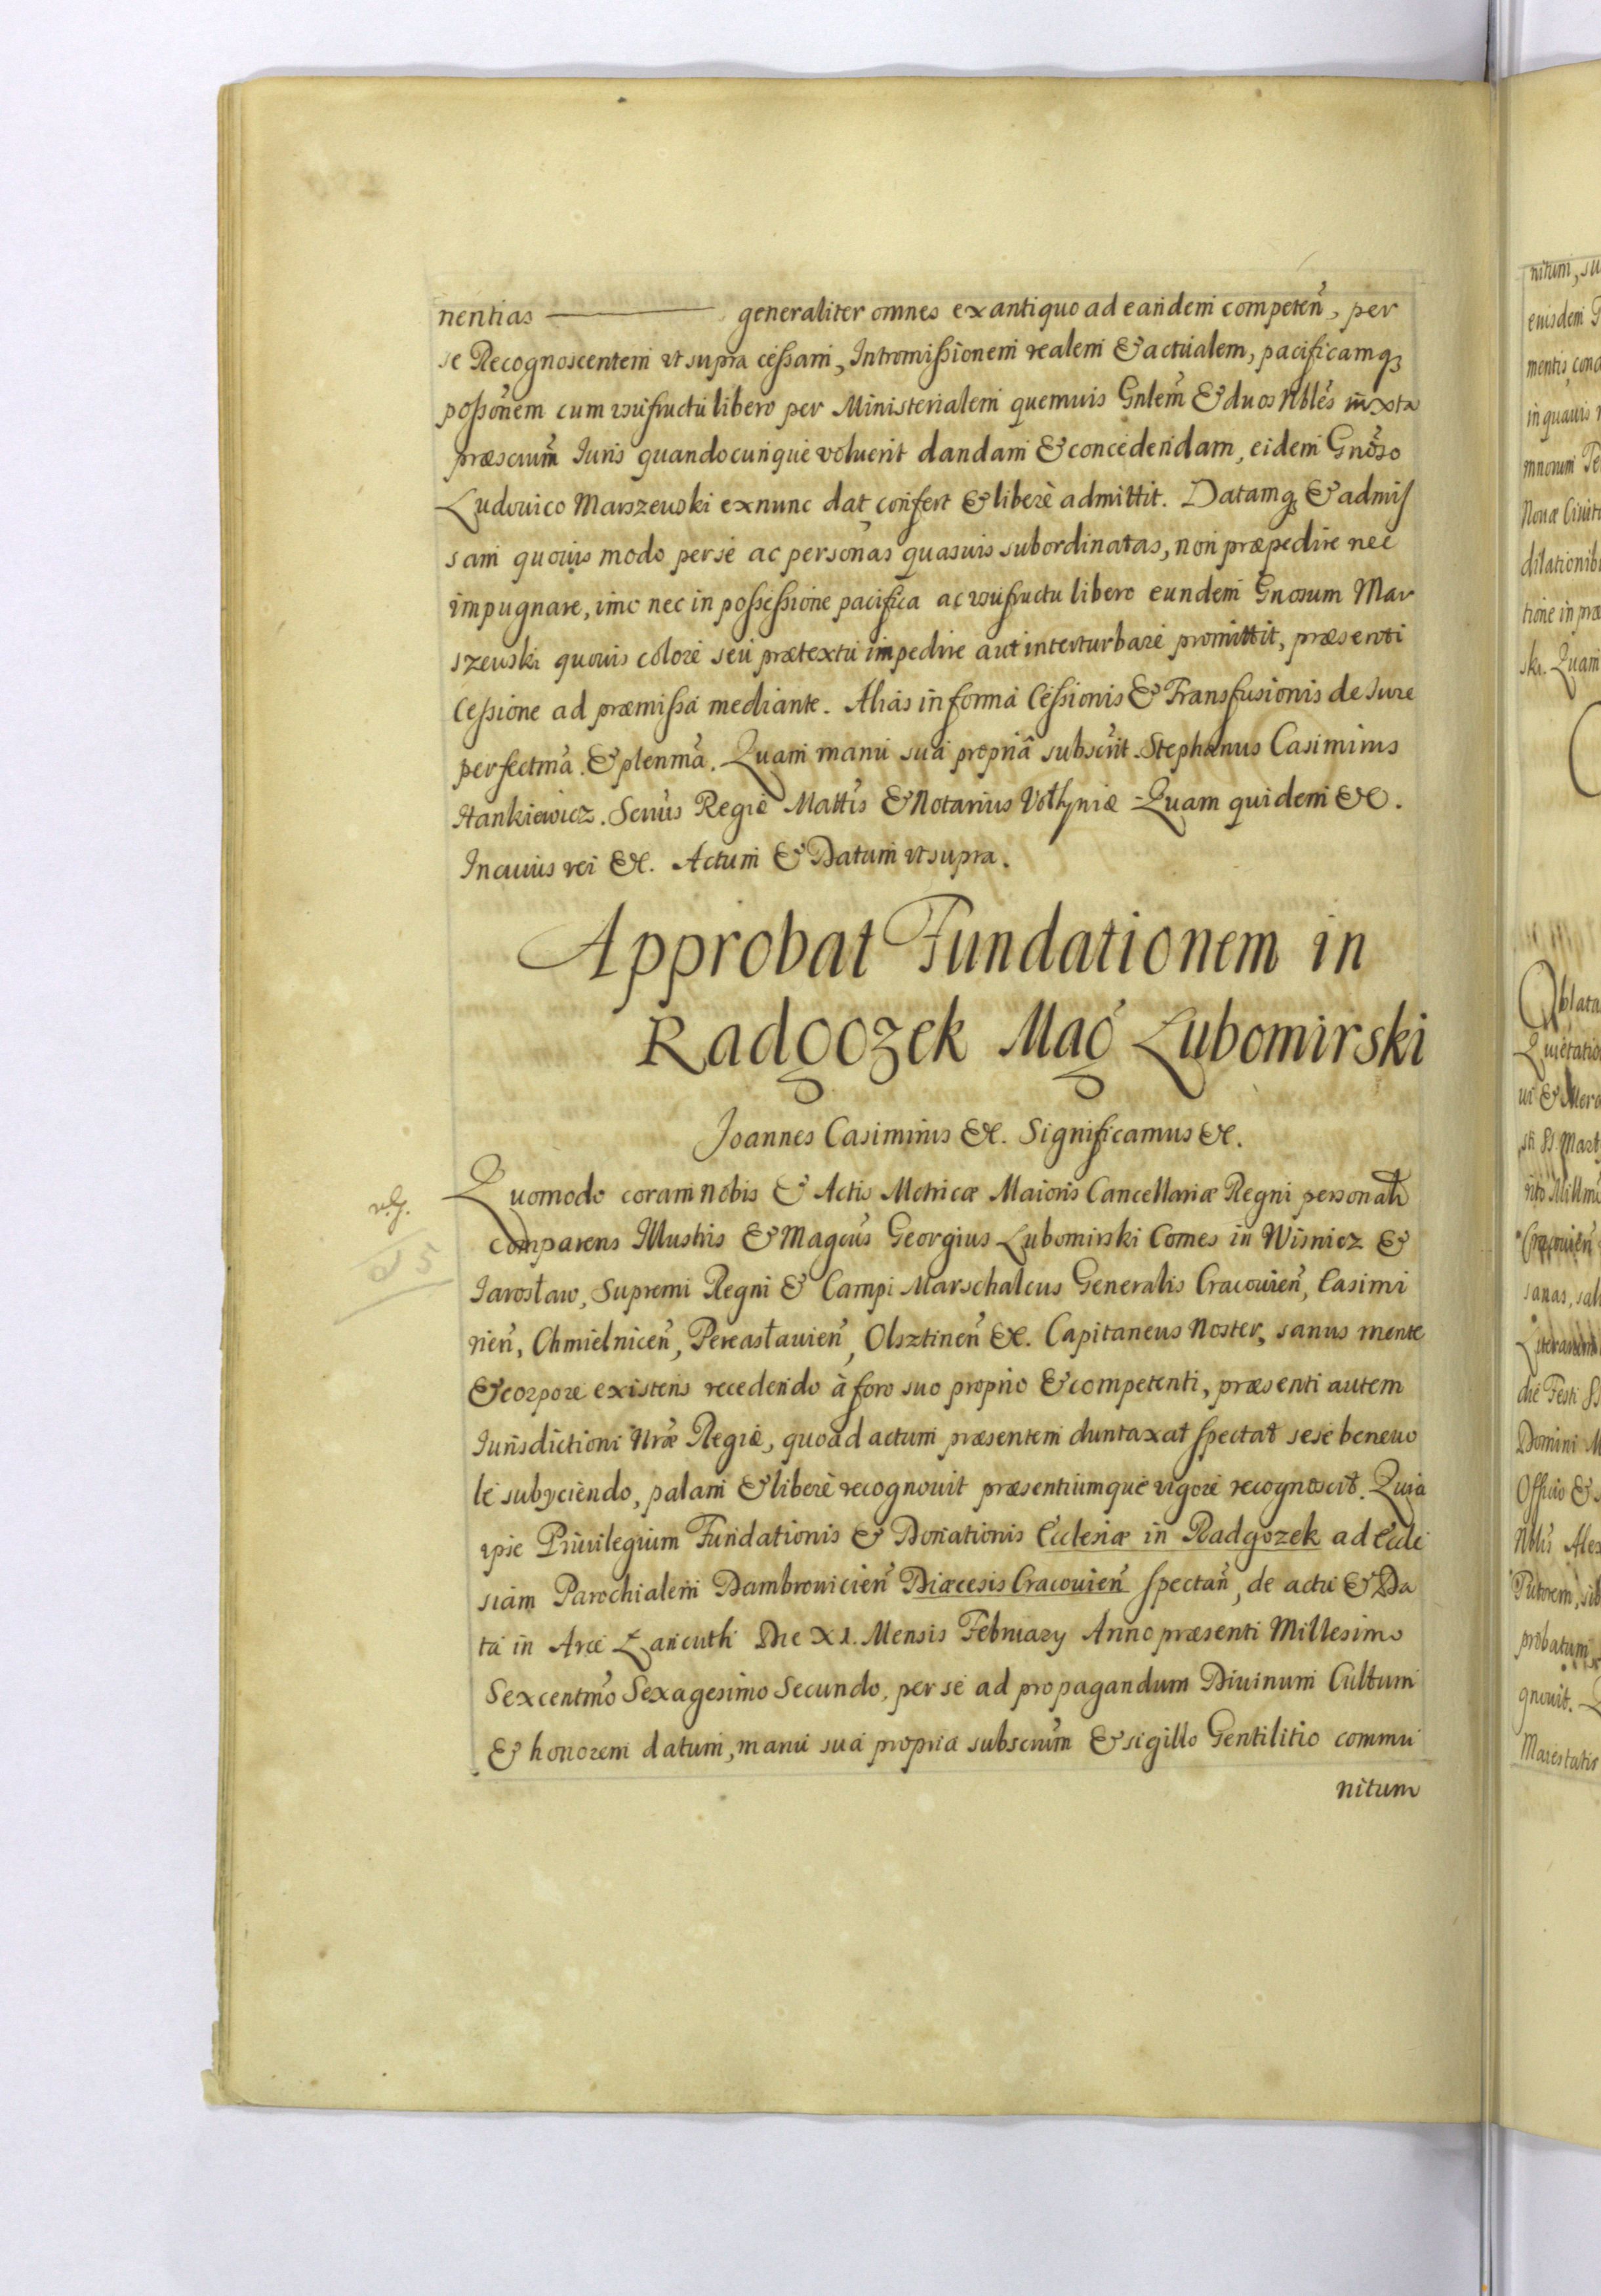 nentias ——— generaliter omnes ex antiquo ad eandem competen̄, per
se Recognoscentem vt supra cessam, Intromissionem realem & actualem, pacificamq̨
possōnem cum vsufructu libero per Ministerialem quemuis Gnlem̄ & duos Nbles̄ iuxta
præscrium̄ Iuris quandocunque voluerit dandam & concedendam, eidem Gnōso
Ludouico Marszewski ex nunc dat, confert & liberè admittit. Datamq̨ & admis
sam quouis modo per se ac personas quasuis subordinatas, non præpedire nec
impugnare, imo nec in possessione pacifica ac vsufructu libero eundem Gnosum Mar
szeuski quouis colore seu prætextu impedire aut interturbare promittit, præsenti
Cessione ad præmissa mediante. Alias in forma Cessionis & Transfusionis de Iure
perfectma̅. & plenma̅. Quam manu sua propriâ subscrit̄. Stephanus Casimirus
Hankiewicz. Secrius̄ Regiæ Mattis̄ & Notarius Vołhyniæ. Quam quidem &c.
In cuius rei &c. Actum & Datum vt supra.
Approbat Fundationem in
Radgozek Mag͠o Lubomirski
Joannes Casimirus &c. Significamus &c.
Quomodo coram Nobis & Actis Metricæ Maioris Cancellariæ Regni personalr̄
comparens Illustris & Magcus̄ Georgius Lubomirski Comes in Wisnicz &
Jarosław, Supremi Regni & Campi Marschalcus Generalis Cracouien̄, Casimi
rien̄, Chmielnicen̄, Pereasłauien̄, Olsztinen̄ &c. Capitaneus Noster, sanus mente
& corpore existens recedendo à foro suo proprio & competenti, præsenti autem
Iurisdictioni Nrǣ Regiæ, quoad actum præsentem duntaxat spectat sese beneuo
le subyciendo, palam & liberè recognouit præsentiumque vigore recognoscit. Quia
ipse Priuilegium Fundationis & Donationis Ecclesiæ in Radgozek ad Eccle
siam Parochialem Dambrouicien̄ Diæcesis Cracouien̄ spectan̄, de actu & Da
ta in Arce Łancuth Die XI. Mensis February Anno præsenti Millesimo
Sexcentmō Sexagesimo Secundo, per se ad propagandum Diuinum Cultum
& honorem datum, manu sua propria subscrium̄ & sigillo Gentilitio commu
nitum